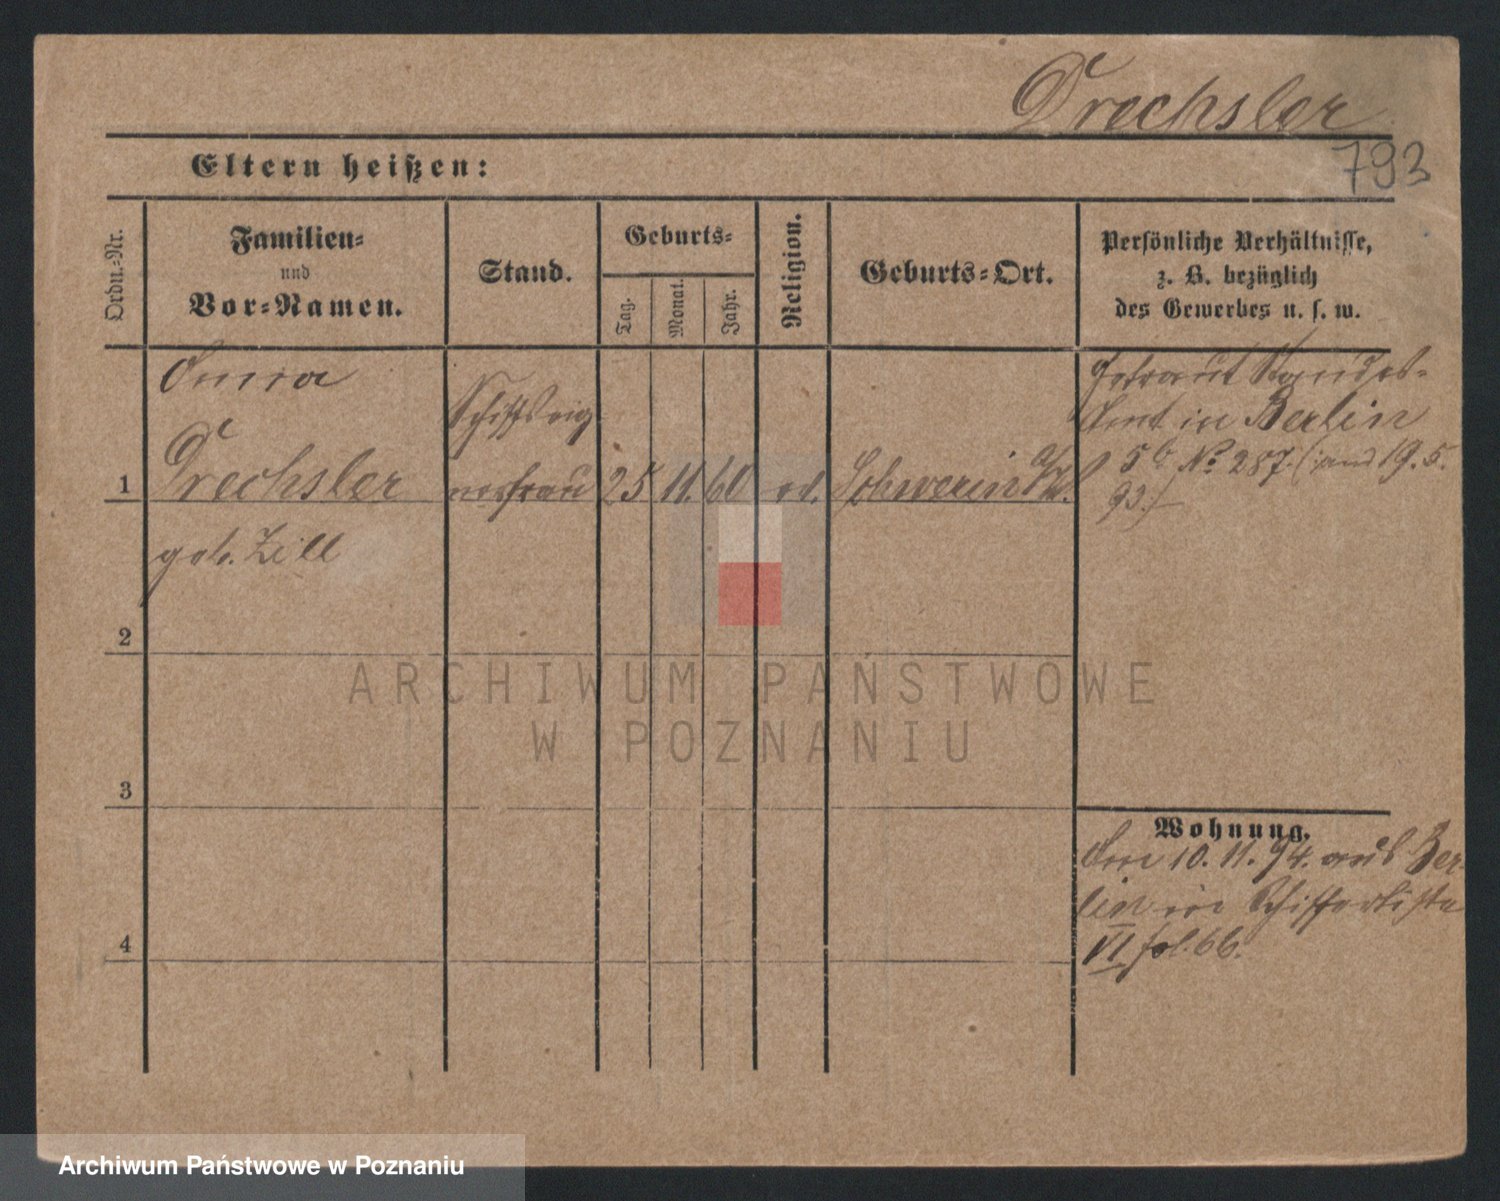 Drechsler
793
Eltern heißen:
Ordn.-Nr.
Familien-
und
Vor-Namen.
Stand.
Geburts-
Tag.
Monat.
Jahr.
Religion.
Geburts-Ort.
Persönliche Verhältnisse,
z. B. bezüglich
des Gewerbes u. s. w.
Anna
Drechsler
geb. Zill
Schiffseig-
nerfrau
25
11.
60
ev.
Schwerin a/W.
getraut Standes-
Amt in Berlin
5b No 287. (: am 19. 5.
93:)
1
2
3
4
Wohnung.
Am 10. 11. 94. aus Ber-
lin in Schifferliste
VI fol. 66.
ARCHIWUM PAŃSTWOWE
W POZNANIU
Archiwum Państwowe w Poznaniu